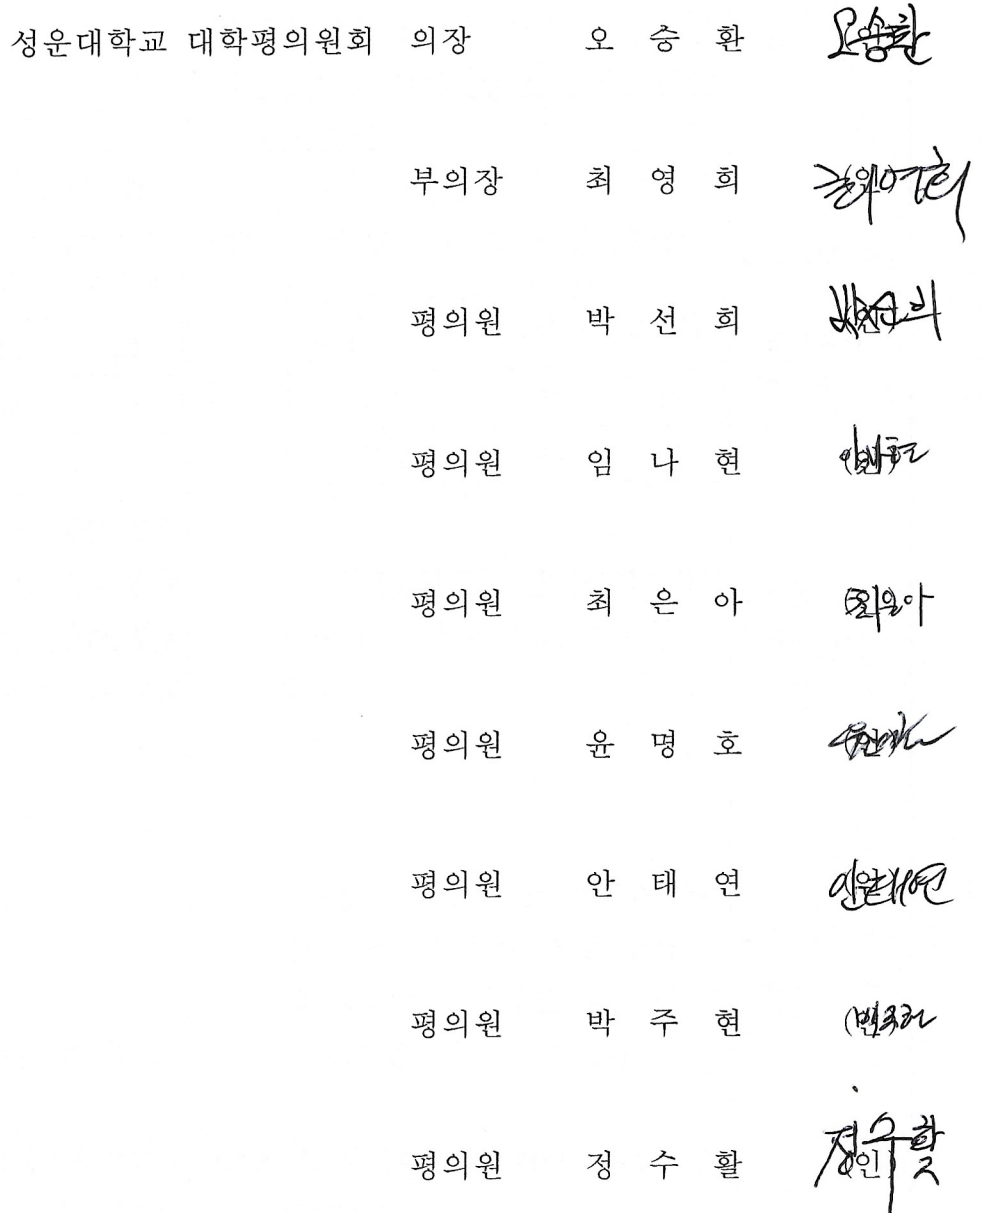 성운대학교 대학평의원회 의장 오 승 환 (인) 오승환
부의장 최 영 희 (인) 최영희
평의원 박 선 희 (인) 박선희
평의원 임 나 현 (인) 임나현
평의원 최 은 아 (인) 최은아
평의원 윤 명 호 (인)
평의원 안 태 연 (인) 안태연
평의원 박 주 현 (인) 박주현
평의원 정 수 활 (인) 정수활